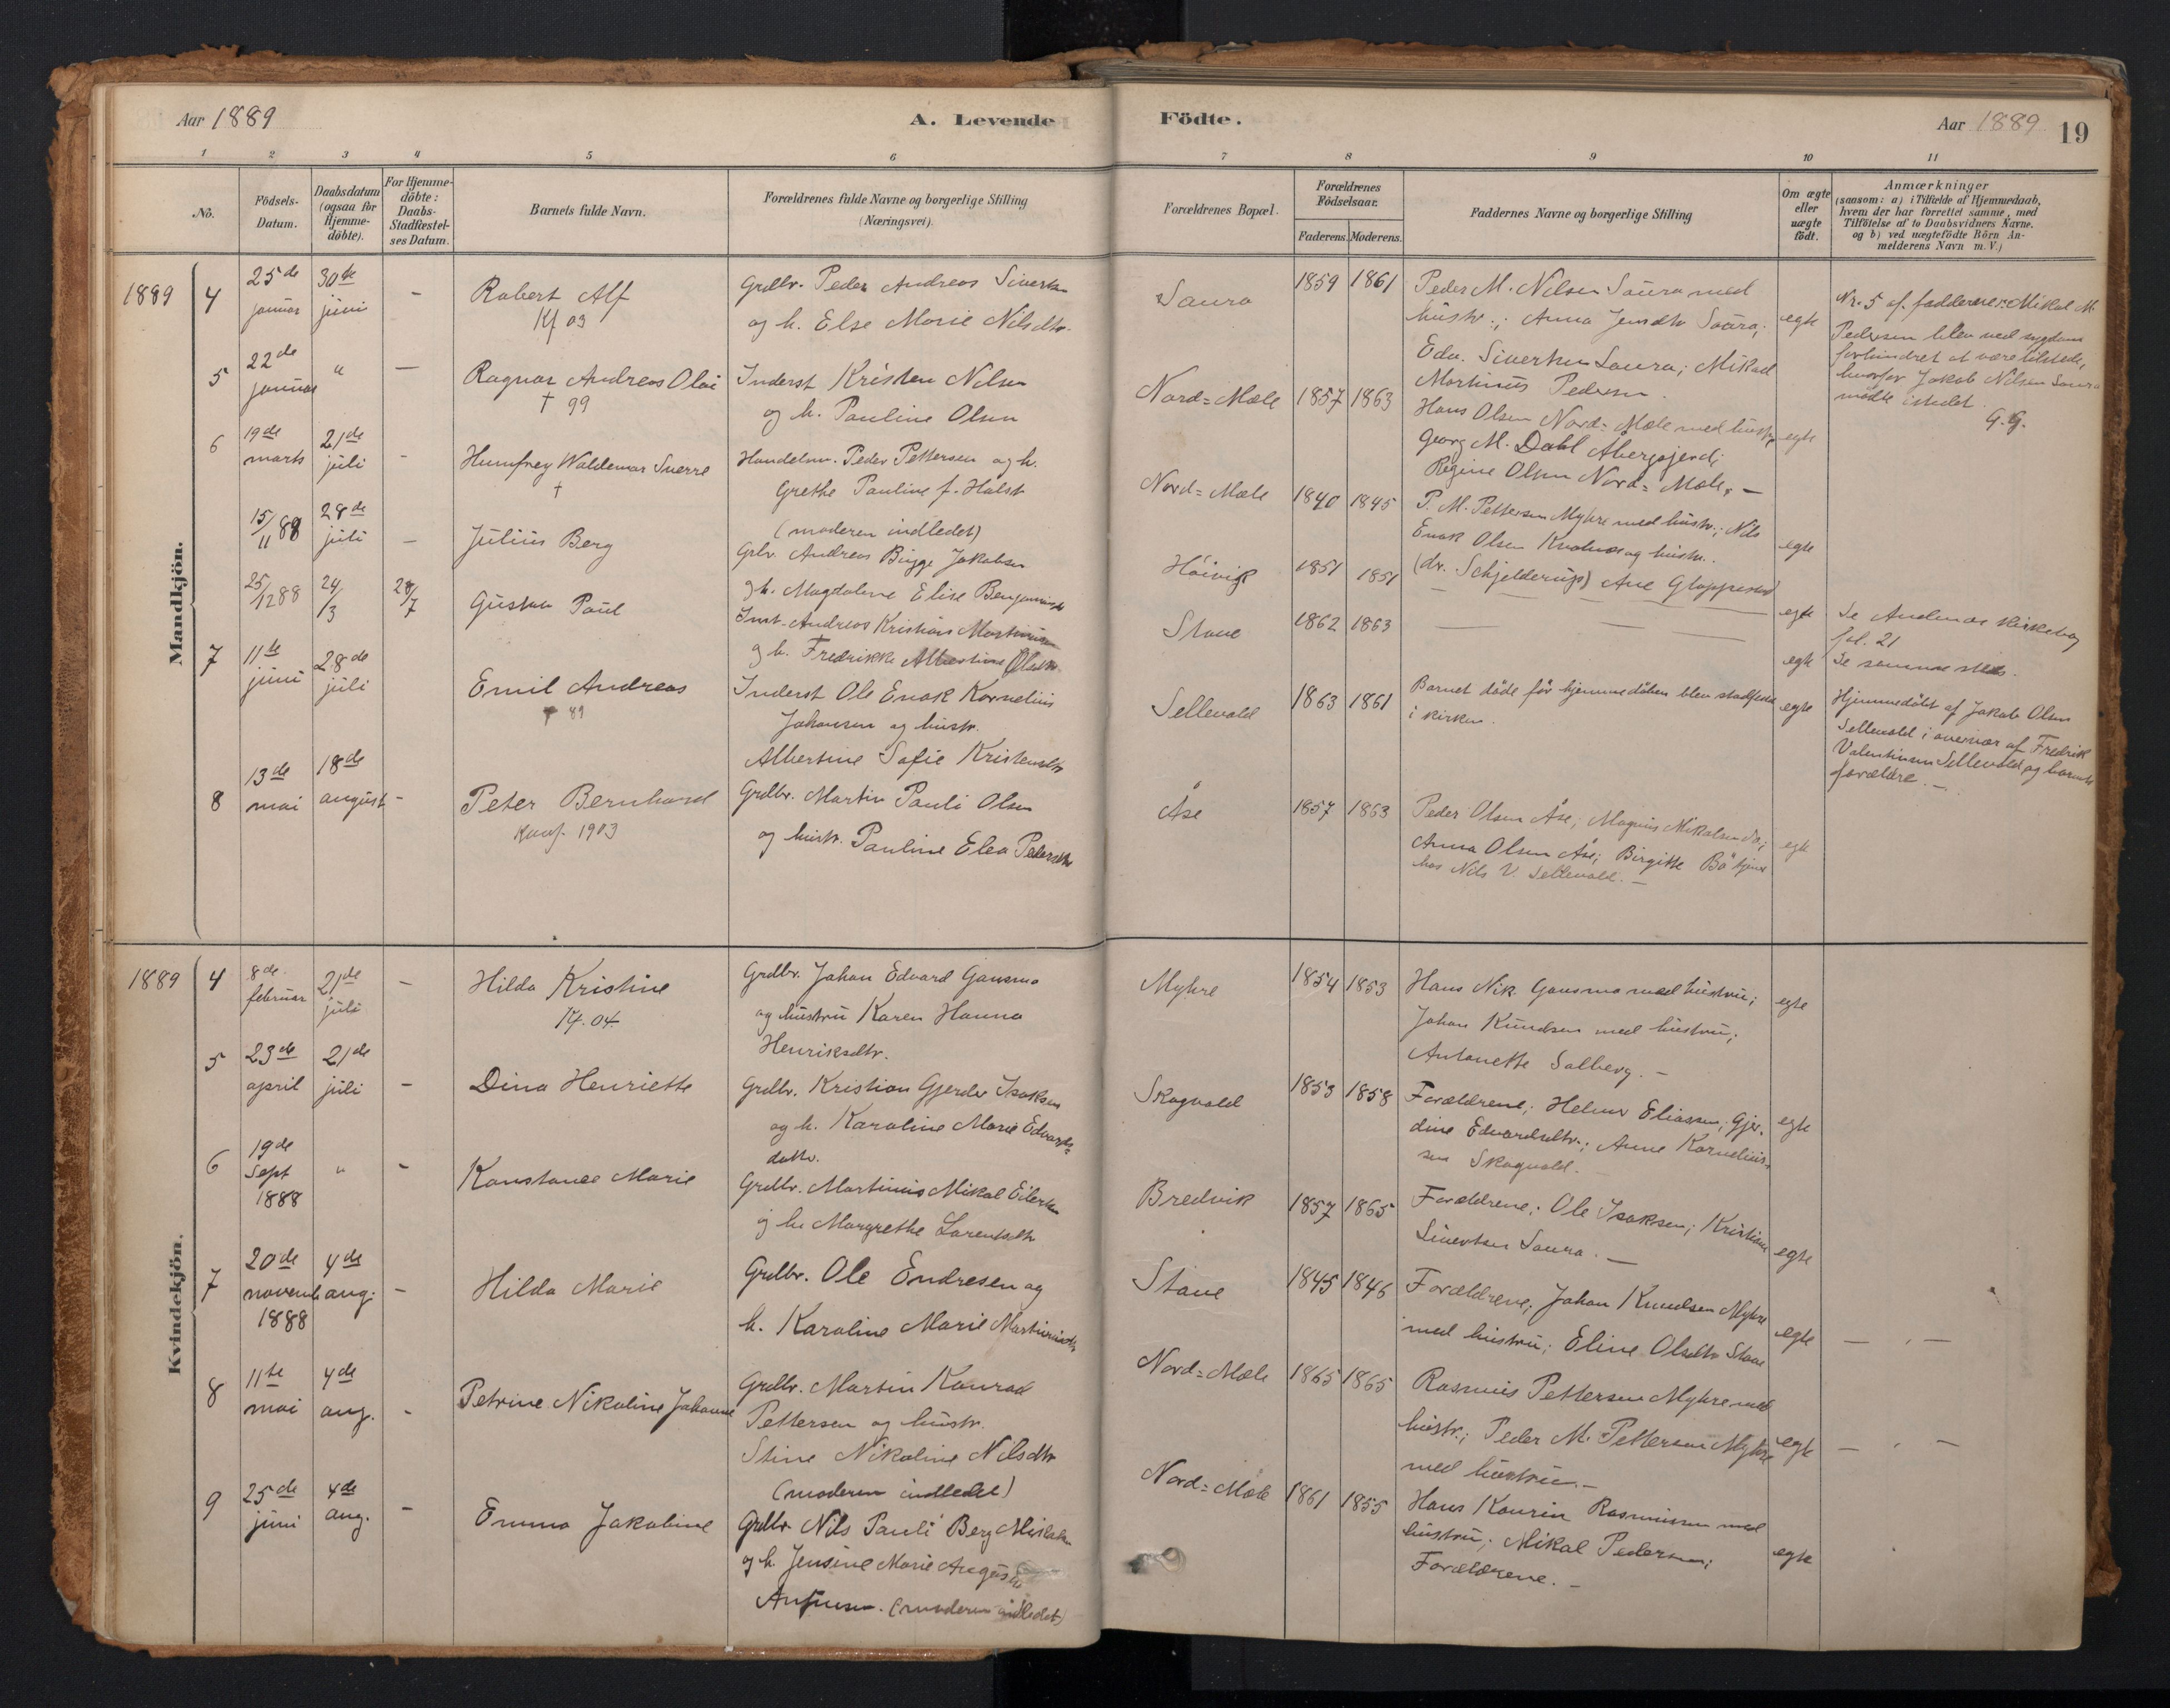 Aar 1889
A. Levende
Födte.
Aar 1889
19
1 2 3 4 5 6
7 8 9 10 11
No.
Födsels-
Datum.
Daabsdatum
(ogsaa for
Hjemme-
döbte).
For Hjemme-
döbte:
Daabs-
Stadfæstel-
ses Datum.
Barnets fulde Navn.
Forældrenes fulde Navne og borgerlige Stilling
(Næringsvei).
Forældrenes Bopæl.
Forældrenes
Födselsaar.
Faderens. Moderens.
Faddernes Navne og borgerlige Stilling
Om ægte
eller
uægte
födt.
Anmærkninger
(saasom: a) i Tilfælde af Hjemmedaab,
hvem der har forrettet samme, med
Tilföielse af to Daabsvidners Navne.
og b) ved uægtefödte Börn An-
melderens Navn m.V.)
Mandkjön.
1889 4
25de
januar
30te
juni
-
Robert Alf
Kf 03
Grdbr. Peder Andreas Sivertsen
og h. Else Marie Nilsdtr.
Saura
1859 1861
Peder M. Nilsen Saura med
hustr.; Anna Jensdtr Saura;
Edv. Sivertsen Saura; Mikael
Martinus Pedersen.
egte
Nr. 5 af fadderne: Mikal M.
Pedersen blev ved sygdom
forhindret at være tilstede,
hvorfor Jakob Nilsen Saura
mødte istedet.
G.G.
5
22de
januar
"
-
Ragnar Andreas Olai
† 99
Inderst Kristen Nilsen
og h. Pauline Olsen
Nord=Mæle
1857 1863
Hans Olsen Nord=Mæle med hustr.
Georg M. Dahl Åbergsjord;
Regine Olsen Nord=Mæle. -
egte
6
19de
marts
21de
juli
-
Humfrey Waldemar Sverre
†
Handelsm. Peder Pettersen og h.
Grethe Pauline f. Holst
(moderen indledet)
Nord=Mæle
1840 1845
P. M. Pettersen Myhre med hustr.; Nils
Enok Olsen og hustr.
(dr. Schjelderup)
egte
15/11 88
28de
juli
-
Julius Berg
Andreas Bugge Jakobsen
og h. Magdalene Elise
Höivik
1851 1851
egte
Se Andenes kirkebog
fol. 21
25/12 88
24/3
28/7
Gustav Paul
Inst. Andreas Kristian
og h. Fredrikke Albertine Olsdtr.
Stave
1862 1863
egte
Se samme sted.
7
11te
juni
28de
juli
Emil Andreas
† 89
Inderst Ole Enok Kornelius
Johansen og hustr.
Albertine Sofie Kristensdtr
Sellevold
1863 1861
Barnet døde før hjemmedåben blev stadfestet
i kirken.
egte
Hjemmedöbt af Jakob Olsen
Sellevold i overvær af Fredrik
Valentinsen Sellevold og barnets
forældre. -
8
13de
mai
18de
august
-
Peter Bernhard
Konf. 1903
Grdbr. Martin Pauli Olsen
og hustr. Pauline Elea Pedersdtr
Åse
1857 1863
Peder Olsen Åse, Magnus Mikalsen do;
Anna Olsen Åse; Birgitte Bö tjener
hos Nils V. Sellevold. -
egte
Kvindekjön.
1889 4
8de
februar
21de
juli
-
Hilda Kristine
Kf. 04
Grdbr. Johan Edvard Gausmo
og hustru Karen Hanna
Henriksdtr.
Myhre
1854 1853
Hans Nik. Gausmo med hustru;
Johan Kundsen med hustru;
Antonette Solberg. -
egte
5
23de
april
21de
juli
-
Dina Henriette
Grdbr. Kristian Gjerder Isaksen
og h. Karoline Marie Edvards=
datter.
Skogvold
1853 1858
Forældrene; Helmer Eliassen; Gjer-
dine Edvardsdtr.; Anne Kornelius-
sen Skogvold. -
egte
6
19de
Sept
1888
"
-
Konstance Marie
Grdbr. Martinus Mikal Eilertsen
og h. Margrethe Lorentsdtr
Bredvik
1857 1865
Forældrene; Ole Isaksen; Kristian
Sivertsen Saura. -
egte
7
20de
novemb
1888
4de
aug.
-
Hilda Marie
Grdbr. Ole Endresen og
h. Karoline Marie Martinusdtr
Stave
1845 1846
Forældrene; Johan Knudsen Myhre
med hustru; Eline Olsdtr Stave
egte
- " -
8
11te
mai
4de
aug.
-
Petrine Nikoline Johanne
Grdbr. Martin Konrad
Pettersen og hustr.
Stine Nikoline Nilsdtr
(moderen indledet)
Nord=Mæle
1865 1865
Rasmus Pettersen Myhre med
hustr.; Peder M. Pettersen Myhre
med hustru. -
egte
- " -
9
25de
juni
4de
aug.
-
Emma Jakobine
Grdbr. Nils Pauli Berg Mikalsen
og h. Jensine Marie Augusta
Antonsen. (moderen indledet)
Nord=Mæle
1861 1855
Hans Kaurin Rasmussen med
hustru; Mikal Pedersen;
Forældrene. -
egte